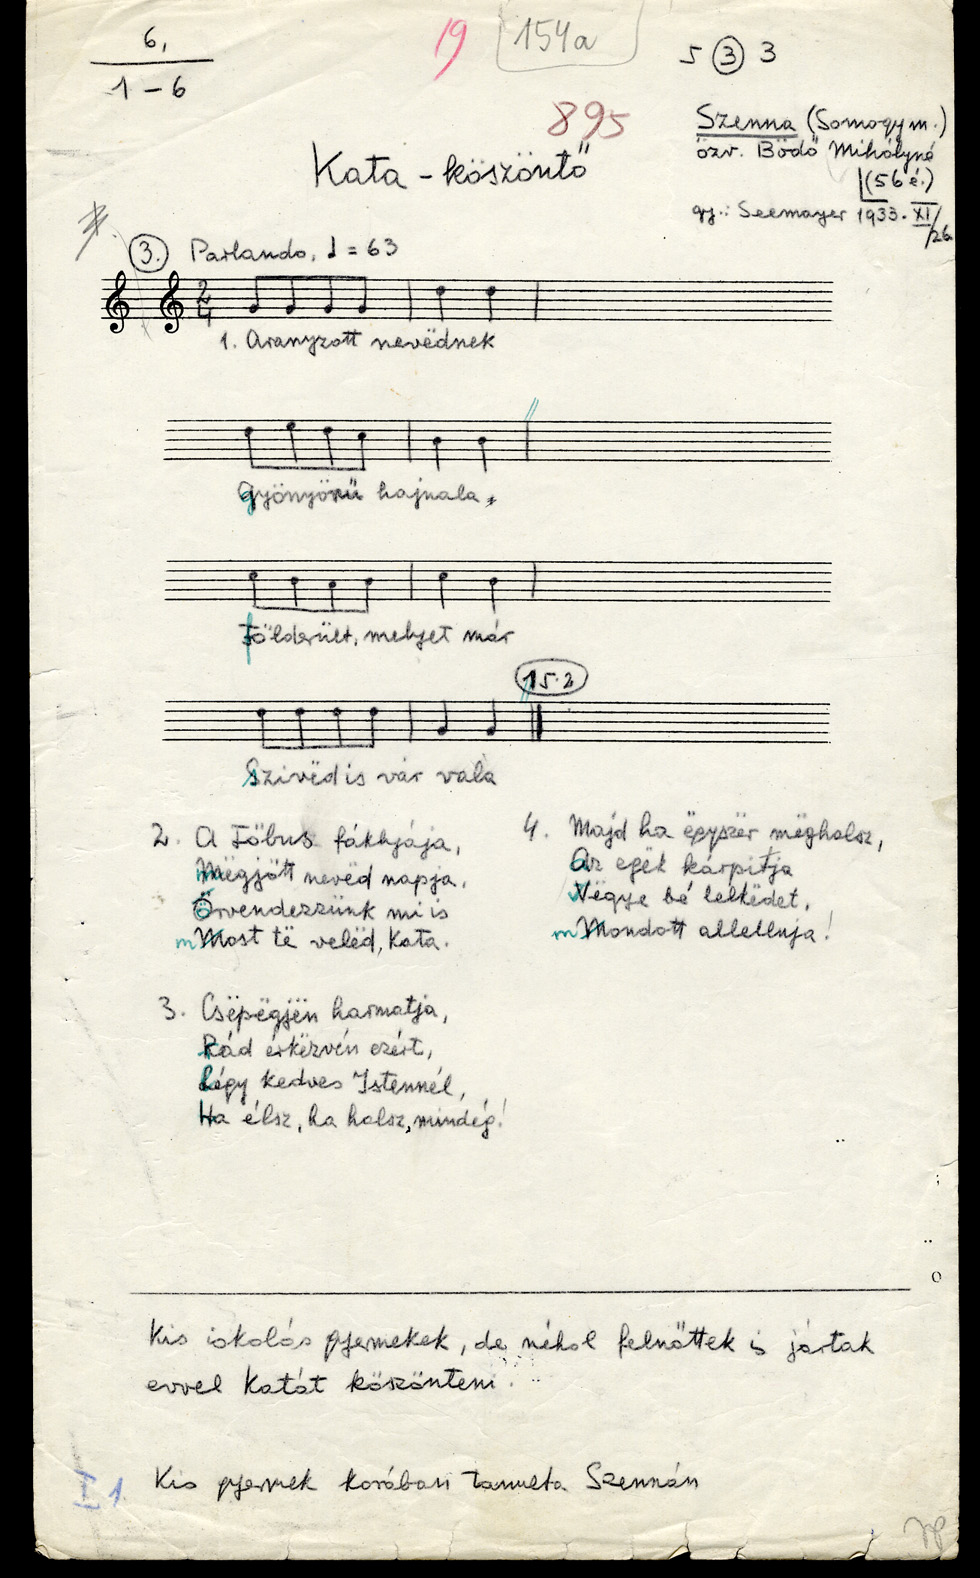 6,
1 – 6
19
154a
5 3 3
895
Szenna (Somogy m.)
özv. Bödő Mihályné
(56 é.)
gy.: Seemayer 1933. XI/26
Kata - köszöntő
3. Parlando, ♩ = 63
2/4
1. Aranyzott nevëdnek
gyönyörű hajnala,
földerült, melyet már
15.2
Szivëd is vár vala
2. A Föbus fáklyája,
mëgjött nevëd napja,
Örvendezzünk mi is
Most të velëd, Kata.
3. Csëpëgjën harmatja,
Rád érkëzvén ezért,
Légy kedves Istennél,
Ha élsz, ha halsz, mindég!
4. Majd ha ëgyszër mëghalsz,
Az egëk kárpitja
Vëgye bé lelkëdet,
Mondott allelluja!
Kis iskolás gyermekek, de néhol felnőttek is jártak
evvel Katát köszönteni.
I 1.
Kis gyermek korában tanulta Szennán